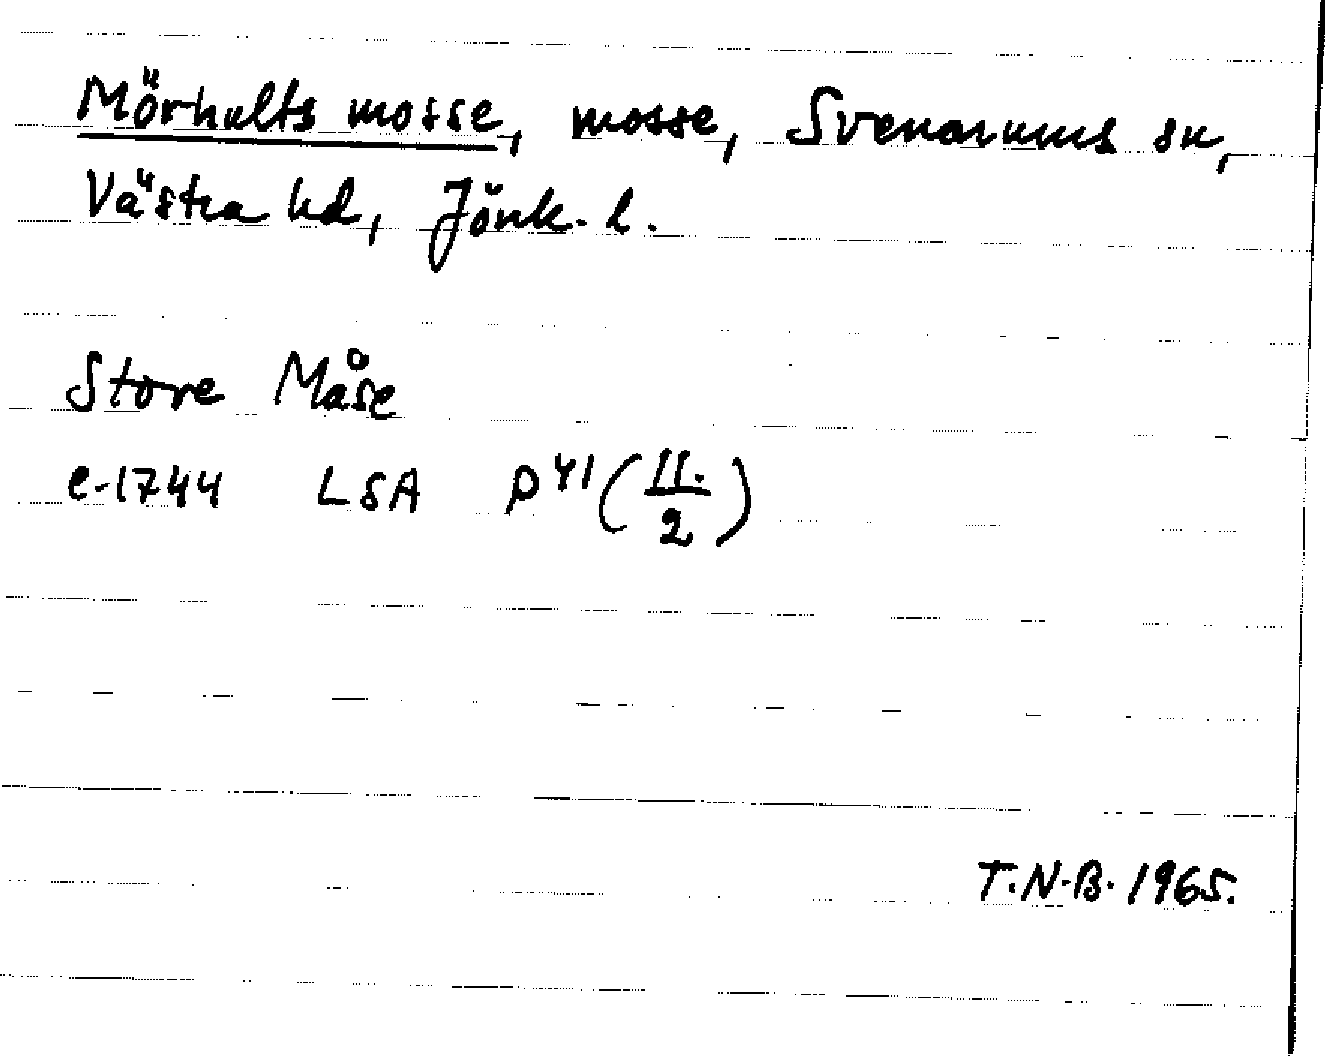 Mörhults mosse, mosse, Svenarums sn,
Västra hd, Jönk. l.
Store Måse
c. 1744 LSA P 41 (11. / 2)
T.N.B. 1965.